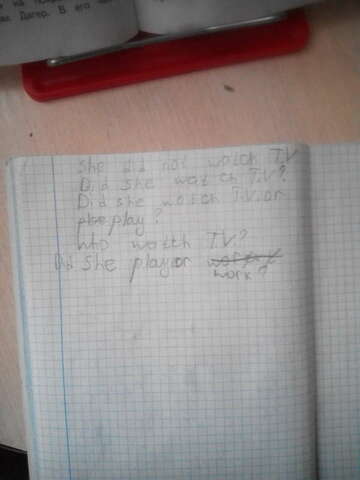 на
Дагер. В его
She did not watch T.V
Did she watch T.V?
Did she watch T.V. or
play?
who watch T.V.?
Did she play or
work?